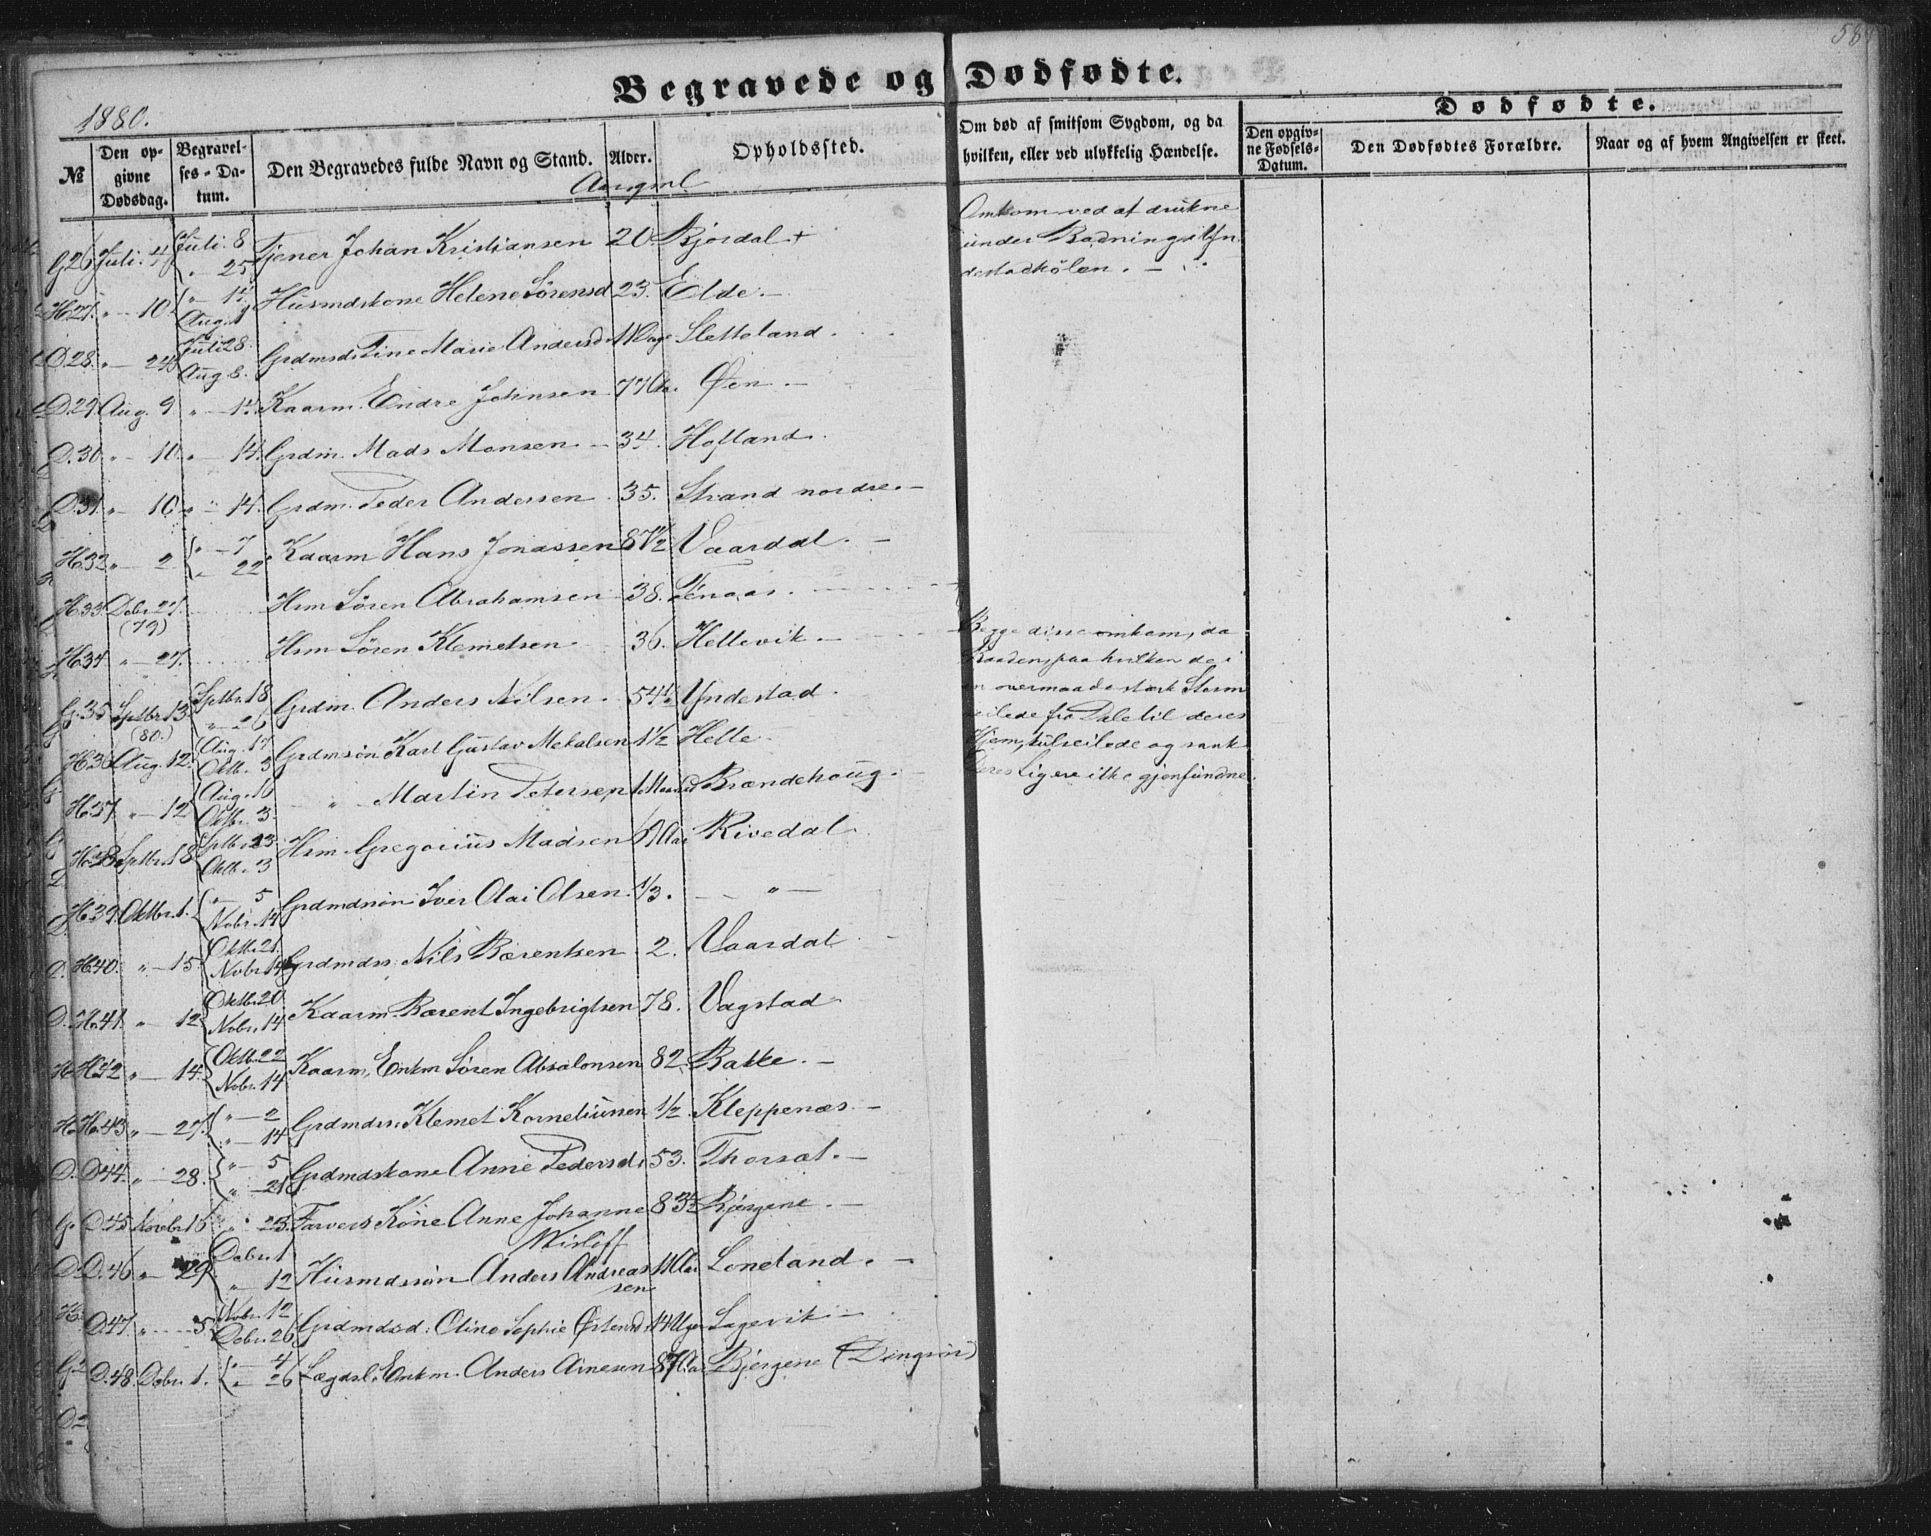 584
Begravede og Dødfødte.
1880.
Dødfødte.
№
Den op-
givne
Dødsdag.
Begravel-
ses-Da-
tum.
Den Begravedes fulde Navn og Stand.
Alder.
Opholdssted.
Om død af smitsom Sygdom, og da
hvilken, eller ved ulykkelig Hændelse.
Den opgiv-
ne Fødsels-
Datum.
Den Dødfødtes Forældre.
Naar og af hvem Angivelsen er skeet.
G26 Juli 4 Juli 8 " 25 Tjener Johan Kristiansen 20. Bjørdal +
Omkom ved at drukne
under Badning i
H27. " 10 " 14 Aug. 1 Husmdskone Helene Sørensd 23. Elde.
D28. " 24 Juli 28 Aug 8. Grdmsd: Tine Marie Andersd 11 Dage Slettoland.
D.29. Aug. 9 " 14. Kaarm. Endre Johnsen 77 Aar. Øen
D.30. " 10. " 14. Grdm. Mads Monsen 34. Hofland.
D.31. " 10 " 14. Grdm. Peder Andersen 35. Strand nordre.
H.32. " 2. " 7 " 22 Kaarm Hans Jonassen 87½ Vaardal.
H.33. Debr. 27. (79) Hsm Søren Abrahamsen 38.
H34 " 27. Hsm Søren Klemetsen 36. Hellevik
Begge disse omkom, da
Baaden, paa hvilken de i
en overmaade stærk Storm
seilede fra Dale til deres
Hjem, kulseilede og sank.
Deres Lig ere ikke gjenfundne.
G.35 Sptbr. 13. (80.) Sptbr. 18 " 26 Grdm. Anders Nilsen 54½ Yndestad.
H.36 Aug. 12. Aug. 17 Oktb. 3 Grdmsøn Karl Gustav Mekalsen 1½ Helle
H.37. " 12 Aug. 16 Oktb. 3. " Martin Petersen 1 Maaned Brandehoug.
H.38 Sptbr. 18 Sptbr. 23. Oktb. 3 Hsm Gregorius Madsen 69 Aar Rivedal
H.39. Oktbr. 1. " 5 Nobr. 14 Grdmdsøn Iver Olai Olsen. 1/3. "
H.40. " 15 Oktb. 21. Nobr. 14 Grdmdss: Nils Bærentsen 2. Vaardal
H.41. " 12 Oktb. 20. Nobr. 14 Kaarm. Bærent Ingebrigtsen 78. Vagstad
H.42 " 14. Oktb. 22 Nobr. 14 Kaarm, Enkm Søren Absalonsen 82. Bakke.
H.43 " 27. " 2 " 14 Grdmdss: Klemet Korneliussen ½. Kleppenæs.
D44. " 28. " 5 " 21 Grdmdskone Anne Pedersd. 53. Thorsal.
D.45 Novbr. 16 " 23 Farvers Kone Anne Johanne 83½ Bjergene.
Wisloff
D.46 " 29 Debr. 1 " 12 Husmdssøn Anders Andreas 11 Aar Loneland.
sen
D.47. " 5 Nobr. 12 Debr. 26 Grdmdsd: Oline Sophie Østensd. 14 Uger Sagevik
D.48. Debr. 1. " 4 " 26 Lægdsl. Enkm. Anders Arnesen 87 Aar Bjergene (Dingsør)